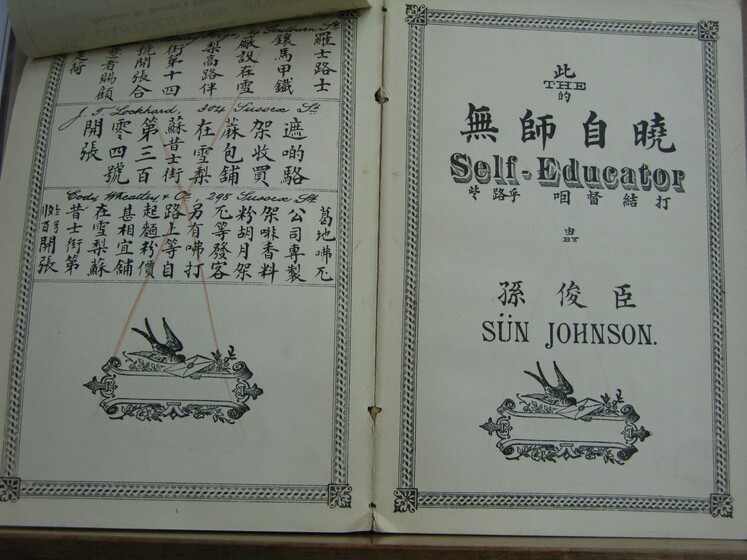 羅士路士
鑲馬甲鐵
廠設在雪
梨高路伴
街第十四
號開張合
者賜顧
J. G. Lockhard, 304 Sussex St.
遮啲駱
架收買
蔴包舖
在雪梨
蘇昔士街
第三百
零四號
開張
Cody Wheatley & Co, 298 Sussex St
葛地咈
公司專製
架啡香料
粉胡月架
等發客
另有咈打
路上等自
起麵粉價
甚相宜舖
在雪梨蘇
昔士街第
開張
此
THE
的
無師自曉
Self-Educator
路乎 咽督結打
由
BY
孫俊臣
SÜN JOHNSON.